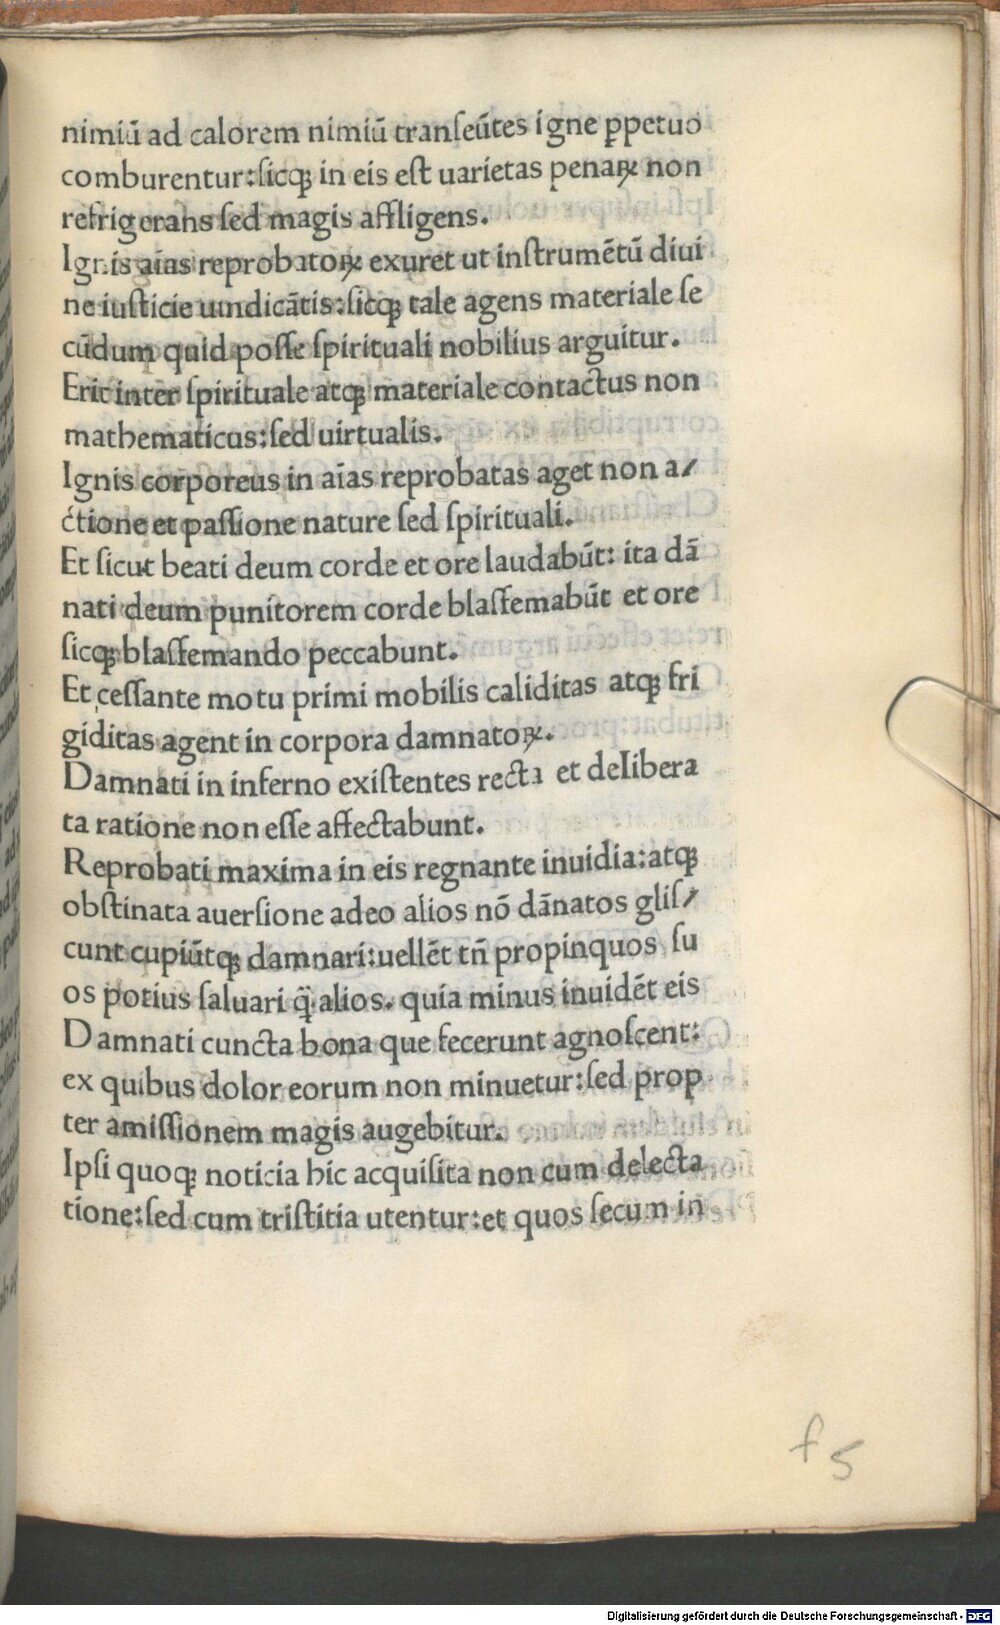 nimiū ad calorem nimiū tranſeūtes igne ꝑpetuo
comburentur:ſicꝙ in eis eſt uarietas penaꝝ non
refrigerans ſed magis affligens.
Ignis aīas reprobatoꝝ exuret ut inſtrumētū diui
ne iuſticie uindicātis:ſicꝙ tale agens materiale ſe
cūdum quid poſſe ſpirituali nobilius arguitur.
Erit inter ſpirituale atꝙ materiale contactus non
mathematicus:ſed uirtualis.
Ignis corporeus in aīas reprobatas aget non a/
ctione et paſſione nature ſed ſpirituali.
Et ſicut beati deum corde et ore laudabūt: ita dā
nati deum punitorem corde blaſfemabūt et ore
ſicꝙ blaſfemando peccabunt.
Et ceſſante motu primi mobilis caliditas atꝙ fri
giditas agent in corpora damnatoꝝ.
Damnati in inferno exiſtentes recta et delibera
ta ratione non eſſe affectabunt.
Reprobati maxima in eis regnante inuidia:atꝙ
obſtinata auerſione adeo alios nō dānatos gliſ/
cunt cupiūtꝙ damnari:uellēt tn̄ propinquos ſu
os potius ſaluari q̈̄ alios. quia minus inuidēt eis
Damnati cuncta bona que fecerunt agnoſcent:
ex quibus dolor eorum non minuetur:ſed prop
ter amiſſionem magis augebitur.
Ipſi quoꝙ noticia hic acquiſita non cum delecta
tione:ſed cum triſtitia utentur:et quos ſecum in
f 5
Digitalisierung gefördert durch die Deutsche Forschungsgemeinschaft - DFG